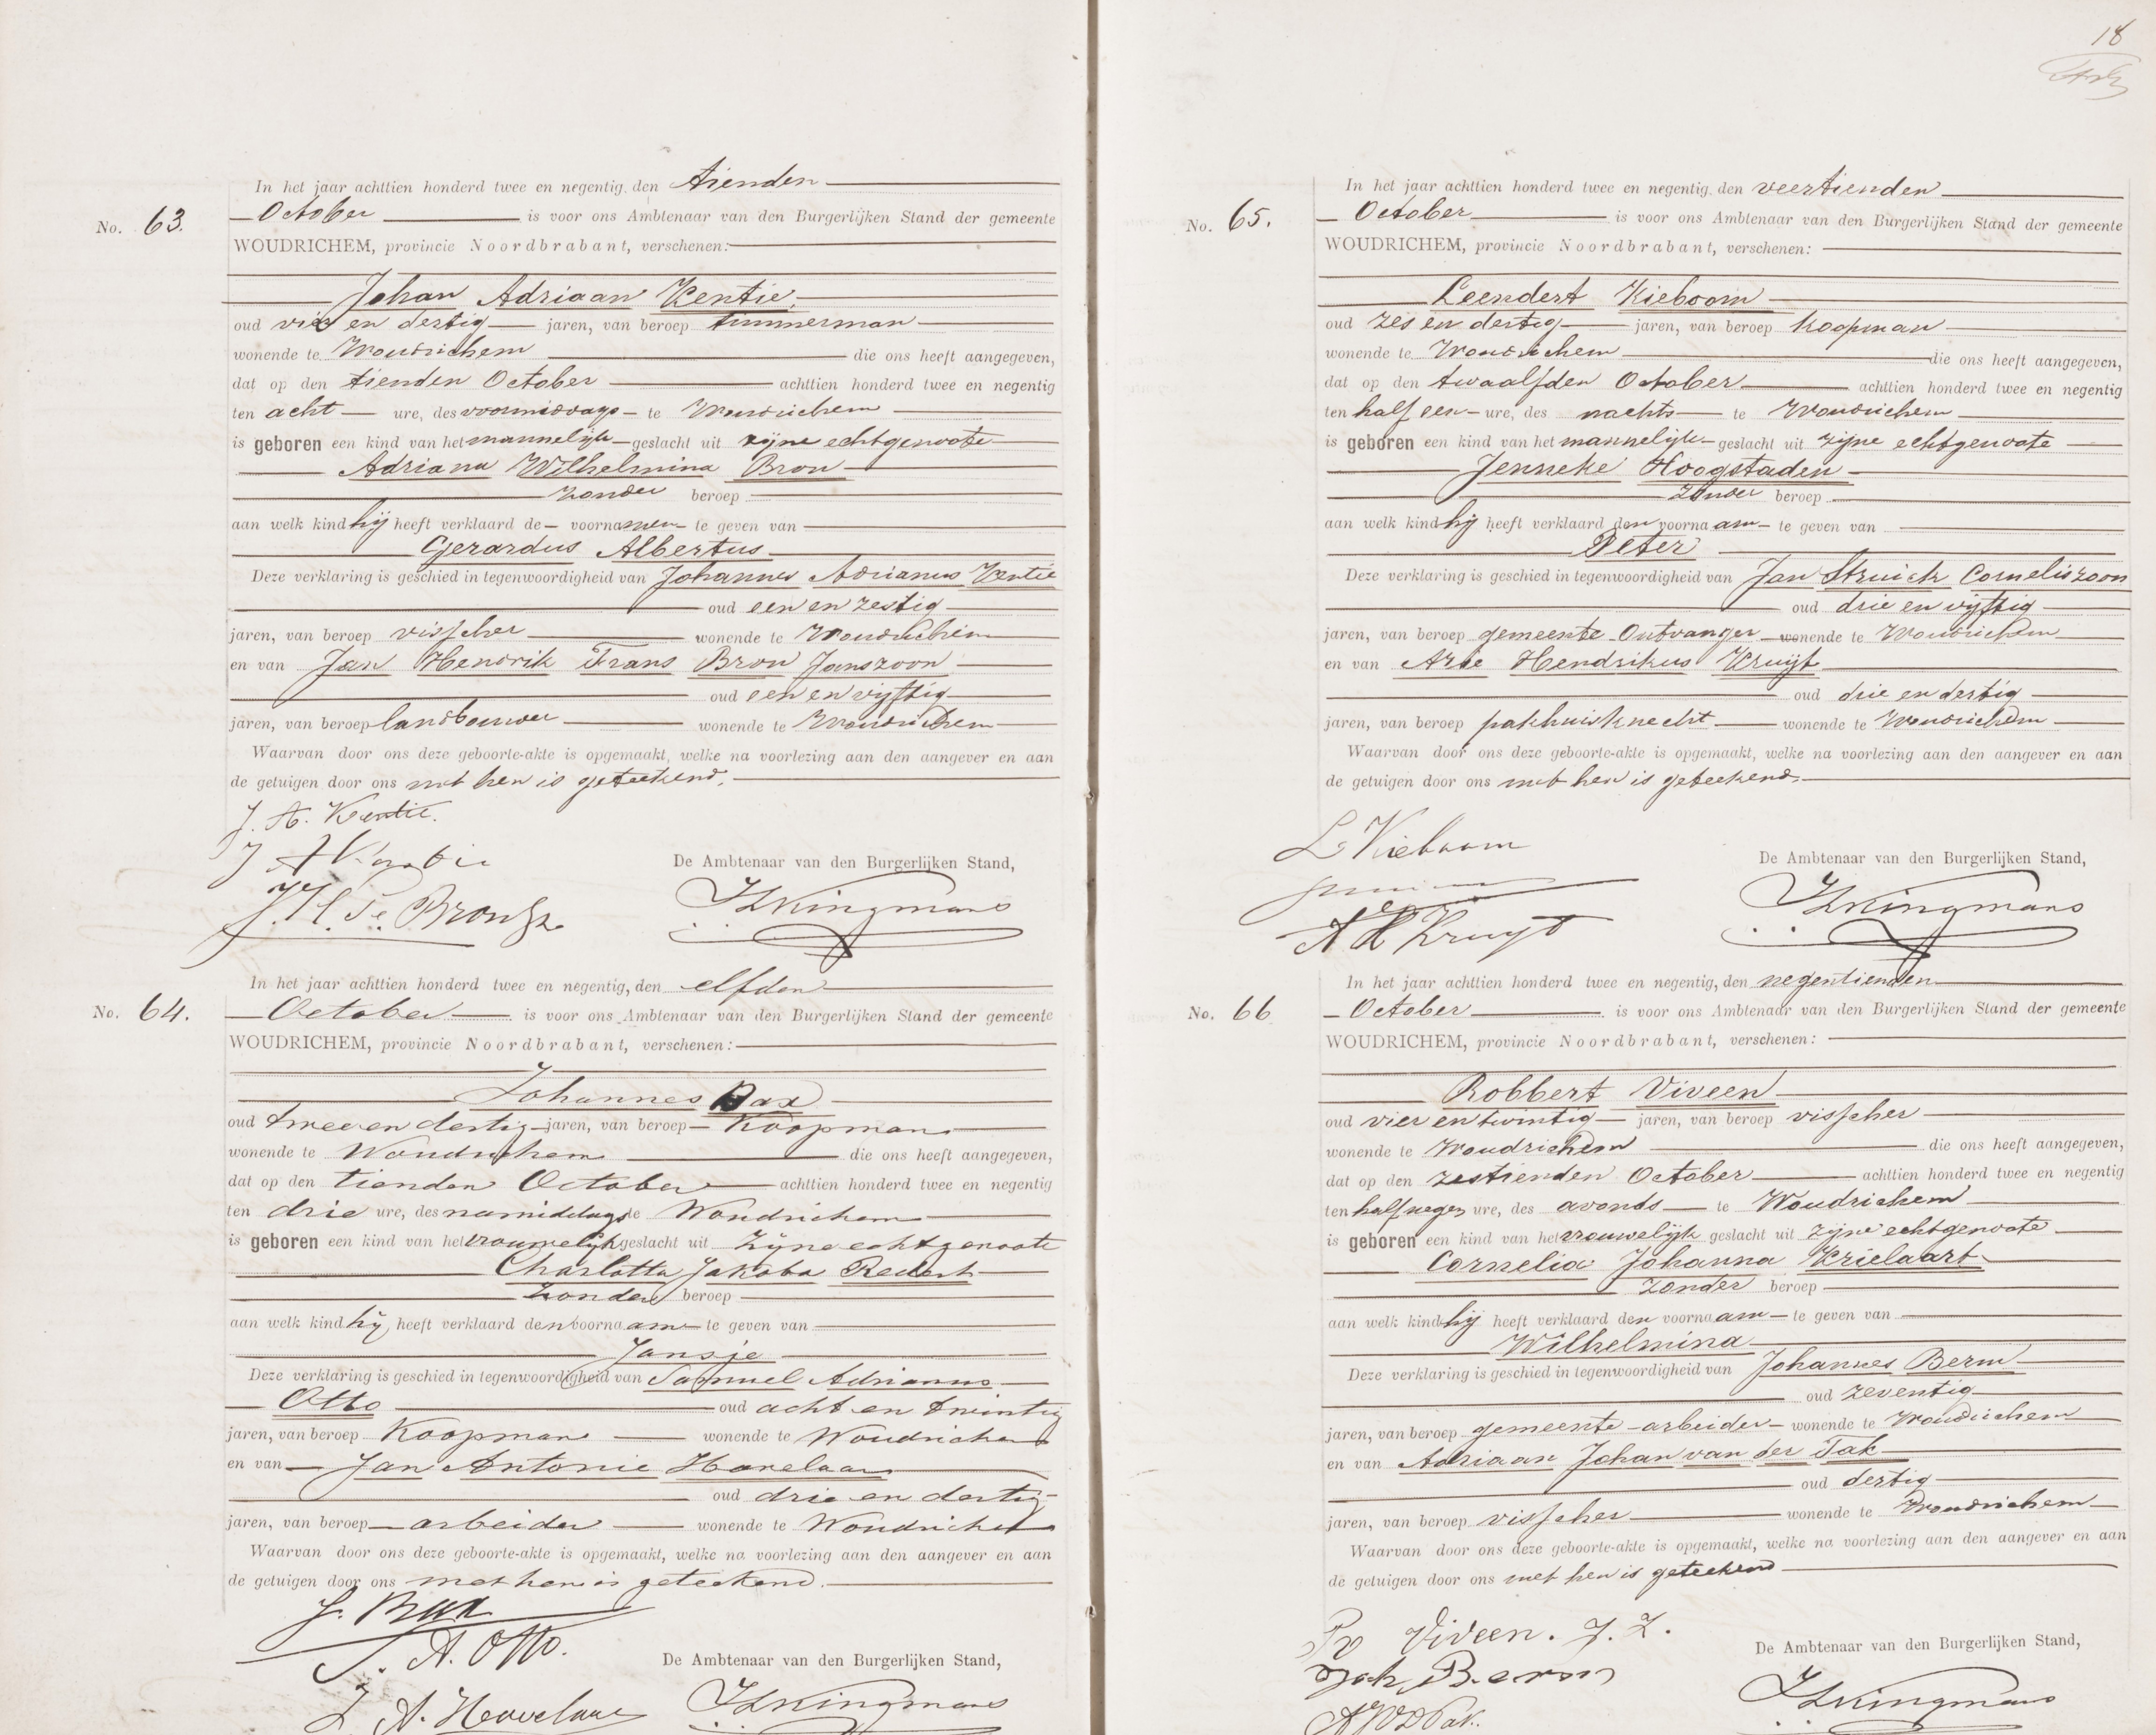 In het jaar achttien honderd twee en negentig, den tienden
No. 63. October is voor ons Ambtenaar van den Burgerlijken Stand der gemeente
WOUDRICHEM, provincie Noordbrabant, verschenen:
Johan Adriaan Kentie,
oud vier en dertig jaren, van beroep timmerman
wonende te Woudrichem die ons heeft aangegeven,
dat op den tienden October achttien honderd twee en negentig
ten acht ure, des voormiddags te Woudrichem
is geboren een kind van het mannelijk geslacht uit zijne echtgenoote
Adriana Wilhelmina Bron
zonder beroep
aan welk kind hij heeft verklaard de voornamen te geven van
Gerardus Albertus
Deze verklaring is geschied in tegenwoordigheid van Johannes Adrianus Kentie
oud een en zestig
jaren, van beroep visscher wonende te Woudrichem
en van Jan Hendrik Frans Bron Janszoon
oud een en vijftig
jaren, van beroep landbouwer wonende te Woudrichem
Waarvan door ons deze geboorte-akte is opgemaakt, welke na voorlezing aan den aangever en aan
de getuigen door ons met hen is geteekend.
J. A. Kentie.
J A Kentie
De Ambtenaar van den Burgerlijken Stand,
In het jaar achttien honderd twee en negentig, den elfden
No. 64. October is voor ons Ambtenaar van den Burgerlijken Stand der gemeente
WOUDRICHEM, provincie Noordbrabant, verschenen:
Johannes Bax
oud twee en dertig jaren, van beroep Koopman
wonende te Woudrichem die ons heeft aangegeven,
dat op den tienden October achttien honderd twee en negentig
ten drie ure, des namiddags te Woudrichem
is geboren een kind van het vrouwelijk geslacht uit zijne echtgenoote
Charlotta Jakoba
zonder beroep
aan welk kind hij heeft verklaard den voornaam te geven van
Jansje
Deze verklaring is geschied in tegenwoordigheid van Samuel Adrianus
Otto oud acht en twintig
jaren, van beroep Koopman wonende te Woudrichem
en van Jan Antonie Havelaar
oud drie en dertig
jaren, van beroep arbeider wonende te Woudrichem
Waarvan door ons deze geboorte-akte is opgemaakt, welke na voorlezing aan den aangever en aan
de getuigen door ons met hen is geteekend.
J. Bax
S. A. Otto.
De Ambtenaar van den Burgerlijken Stand,
J A. Havelaar
18
In het jaar achttien honderd twee en negentig, den veertienden
No. 65. October is voor ons Ambtenaar van den Burgerlijken Stand der gemeente
WOUDRICHEM, provincie Noordbrabant, verschenen:
Leendert Kieboom
oud zes en dertig jaren, van beroep Koopman
wonende te Woudrichem die ons heeft aangegeven,
dat op den twaalfden October achttien honderd twee en negentig
ten half een ure, des nachts te Woudrichem
is geboren een kind van het mannelijk geslacht uit zijne echtgenoote
Jenneke Hoogstaden
zonder beroep
aan welk kind hij heeft verklaard den voornaam te geven van
Peter
Deze verklaring is geschied in tegenwoordigheid van Jan Struick Corneliszoon
oud drie en vijftig
jaren, van beroep gemeente-Ontvanger wonende te Woudrichem
en van Arie Hendrikus Kruijt
oud drie en dertig
jaren, van beroep pakhuisknecht wonende te Woudrichem
Waarvan door ons deze geboorte-akte is opgemaakt, welke na voorlezing aan den aangever en aan
de getuigen door ons met hen is geteekend.
L. Kieboom
De Ambtenaar van den Burgerlijken Stand,
A H Kruyt
In het jaar achttien honderd twee en negentig, den negentienden
No. 66 October is voor ons Ambtenaar van den Burgerlijken Stand der gemeente
WOUDRICHEM, provincie Noordbrabant, verschenen:
Robbert Viveen
oud vier en twintig jaren, van beroep visscher
wonende te Woudrichem die ons heeft aangegeven,
dat op den zestienden October achttien honderd twee en negentig
ten half negen ure, des avonds te Woudrichem
is geboren een kind van het vrouwelijk geslacht uit zijne echtgenoote
Cornelia Johanna Krielaart
zonder beroep
aan welk kind hij heeft verklaard den voornaam te geven van
Wilhelmina
Deze verklaring is geschied in tegenwoordigheid van Johannes Berm
oud zeventig
jaren, van beroep gemeente-arbeider wonende te Woudrichem
en van Adriaan Johan van der Tak
oud dertig
jaren, van beroep visscher wonende te Woudrichem
Waarvan door ons deze geboorte-akte is opgemaakt, welke na voorlezing aan den aangever en aan
de getuigen door ons met hen is geteekend
Viveen. J. Z.
De Ambtenaar van den Burgerlijken Stand,